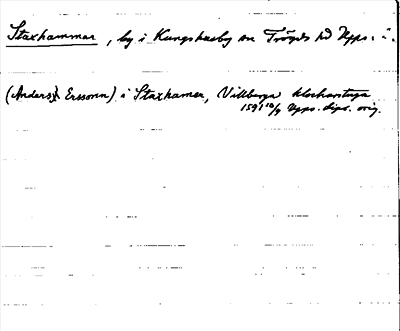 Staxhammar, by i Kungshusby sn Trögds hd Upps. l.
(Anders) Erssonn) i Staxhamer, Villberga klockarstuga
1591 10/9 Upps. dipl. orig.